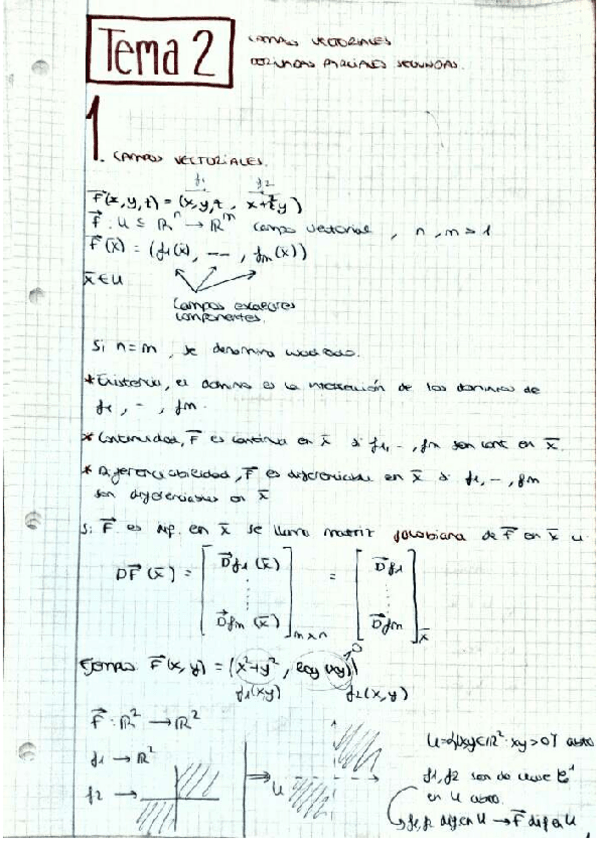 Tema 2
CAMPOS VECTORIALES
DERIVADAS PARCIALES SEGUNDAS.
1. CAMPOS VECTORIALES.
f1 f2
F(x,y,t) = (x,y,t, x+ty)
F: U ⊆ ℝⁿ → ℝᵐ campo vectorial, n,m > 1
F(x̄) = (f1(x̄), ---, fm(x̄))
x̄ ∈ U
Campos escalares
componentes.
Si n=m, se denomina
* Existencia, el dominio es la intersección de los dominios de
f1, -, fm.
* Continuidad, F es continua en x̄ si f1, -, fm son cont en x̄.
* Diferenciabilidad, F es diferenciable en x̄ si f1, -, fm
son diferenciables en x̄
Si F es dif. en x̄ se llama matriz jacobiana de F en x̄ a
DF(x̄) = [Df1(x̄) ⋮ Dfm(x̄)]mxn = [Df1 ⋮ Dfm]x̄
Ejemplo F(x,y) = (x²+y², log(xy))
f1(x,y) f2(x,y)
F: ℝ² → ℝ²
f1 → ℝ²
f2 →
⇒ U
U={(x,y)∈ℝ²: xy>0} abierto
f1, f2 son de clase C¹
en U abierto.
f1, f2 dif en U → F dif en U